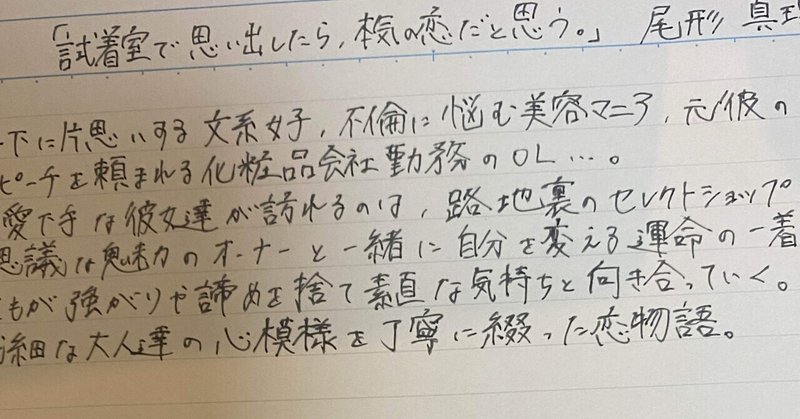 「試着室で思い出したら、本気の恋だと思う。」 尾形 真理
下に片思いする文系女子、不倫に悩む美容マニア、元彼の
ピーチを頼まれる化粧品会社勤務のOL…。
愛下手な彼女達が訪れるのは、路地裏のセレクトショップ
思議な魅力のオーナーと一緒に自分を変える運命の一着
もが強がりや諦めを捨て素直な気持ちと向き合っていく。
細な大人達の心模様を丁寧に綴った恋物語。